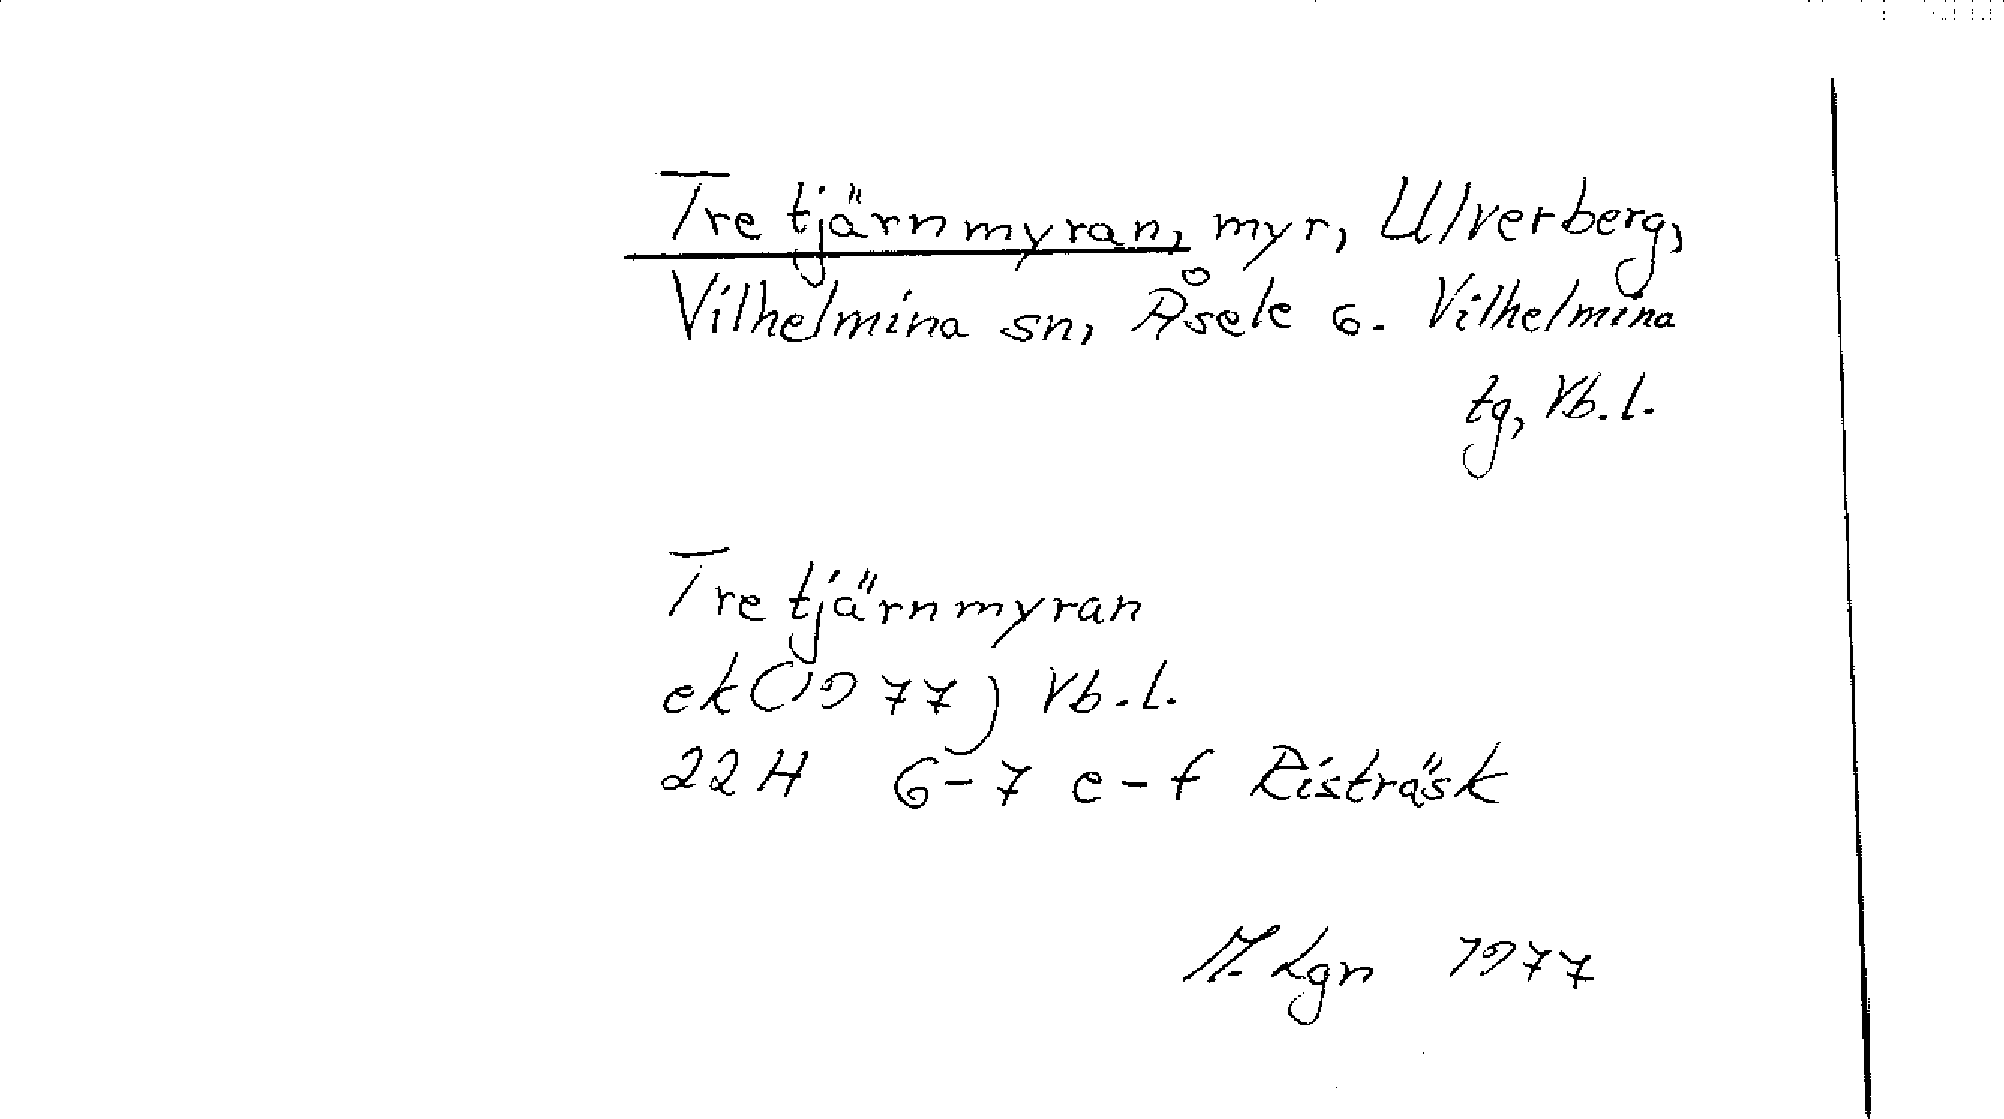 Tretjärnmyran, myr, Ulverberg,
Vilhelmina sn, Åsele 6. Vilhelmina
tg, Vb.l.
Tretjärnmyran
ek (1977) Vb.l.
22H 6-7 e-f Risträsk
M. Lgn 1977